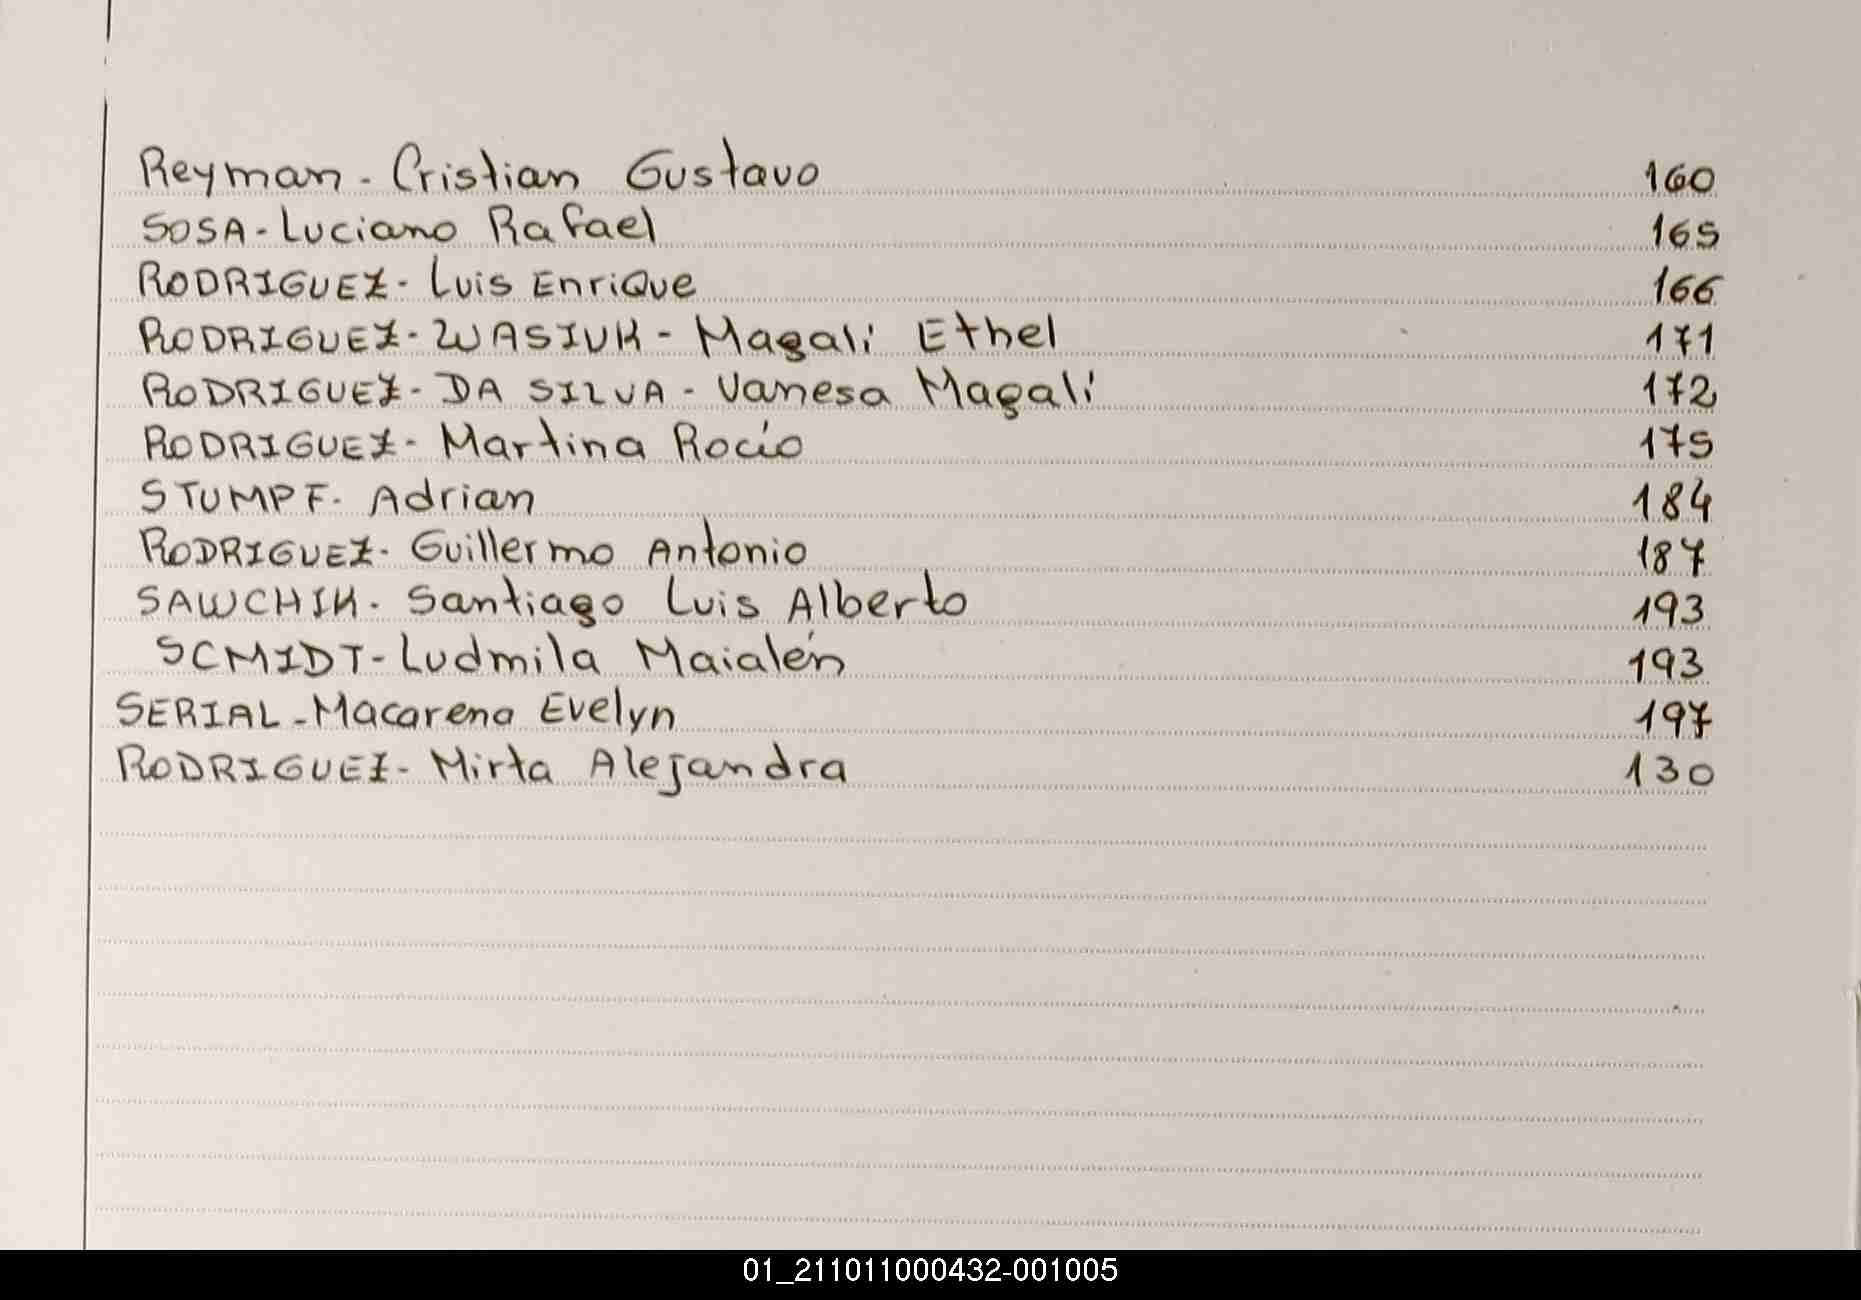 Reyman - Cristian Gustavo 160
SOSA - Luciano Rafael 165
RODRIGUEZ - Luis Enrique 166
RODRIGUEZ - WASIUK - Magalí Ethel 171
RODRIGUEZ - DA SILVA - Vanesa Magalí 172
RODRIGUEZ - Martina Rocío 175
STUMPF - Adrian 184
RODRIGUEZ - Guillermo Antonio 187
SAWCHIK - Santiago Luis Alberto 193
SCMIDT - Ludmila Maialén 193
SERIAL - Macarena Evelyn 197
RODRIGUEZ - Mirta Alejandra 130
01_211011000432-001005